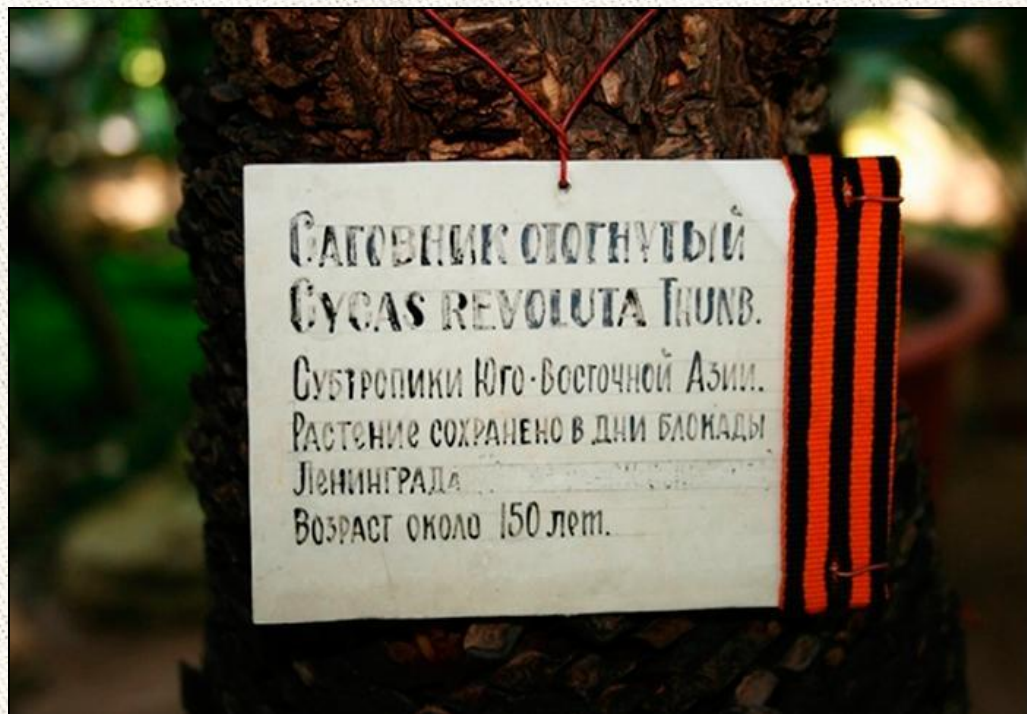 Саговник отогнутый
Cycas revoluta Thunb.
Субтропики Юго-Восточной Азии.
Растение сохранено в дни блокады
Ленинграда
Возраст около 150 лет.